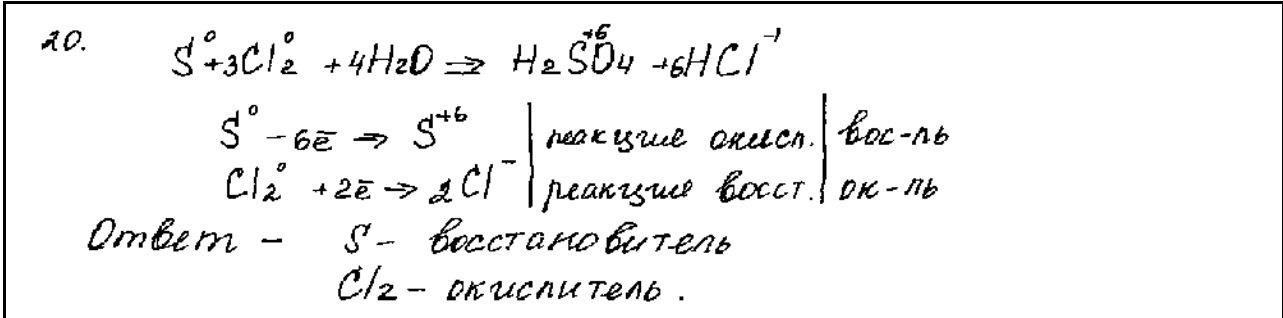 20. S⁰+3Cl₂⁰ +4H₂O ⇒ H₂S⁺⁶O₄ +6HCl⁻¹
S⁰ -6ē → S⁺⁶ | реакция окисл. | вос-ль
Cl₂⁰ +2ē → 2Cl⁻ | реакция восст. | ок-ль
Ответ - S - восстановитель
Cl₂ - окислитель.